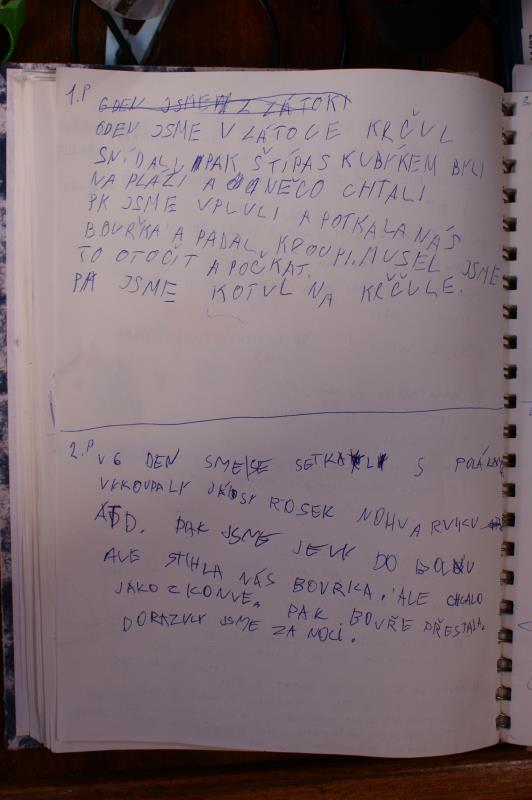 1.P 6DEN JSME V ZÁTOKI
6DEN JSME V ZÁTOCE KRČUL
SNÍDALI PAK ŠTÍPAS KUBÍKEM BYLI
NA PLÁŽI A NĚCO CHTALI
PK JSME VPLULI A POTKALA NÁS
BOUŘKA A PADAL KROUPI. MUSEL JSME
TO OTOČIT A POČKAT.
PAK JSME KOTVL NA KRČULE.
2.P V 6 DEN SME SE SETKALI S
VYKOUPALY ROSEK NOHU A RUKU
ATD. PAK JSME JELY DO
ALE STIHLA NÁS BOURKA. ALE CHCALO
JAKO Z KONVE. PAK BOUŘE PŘESTALA.
DORAZULY JSME ZA NOCI.